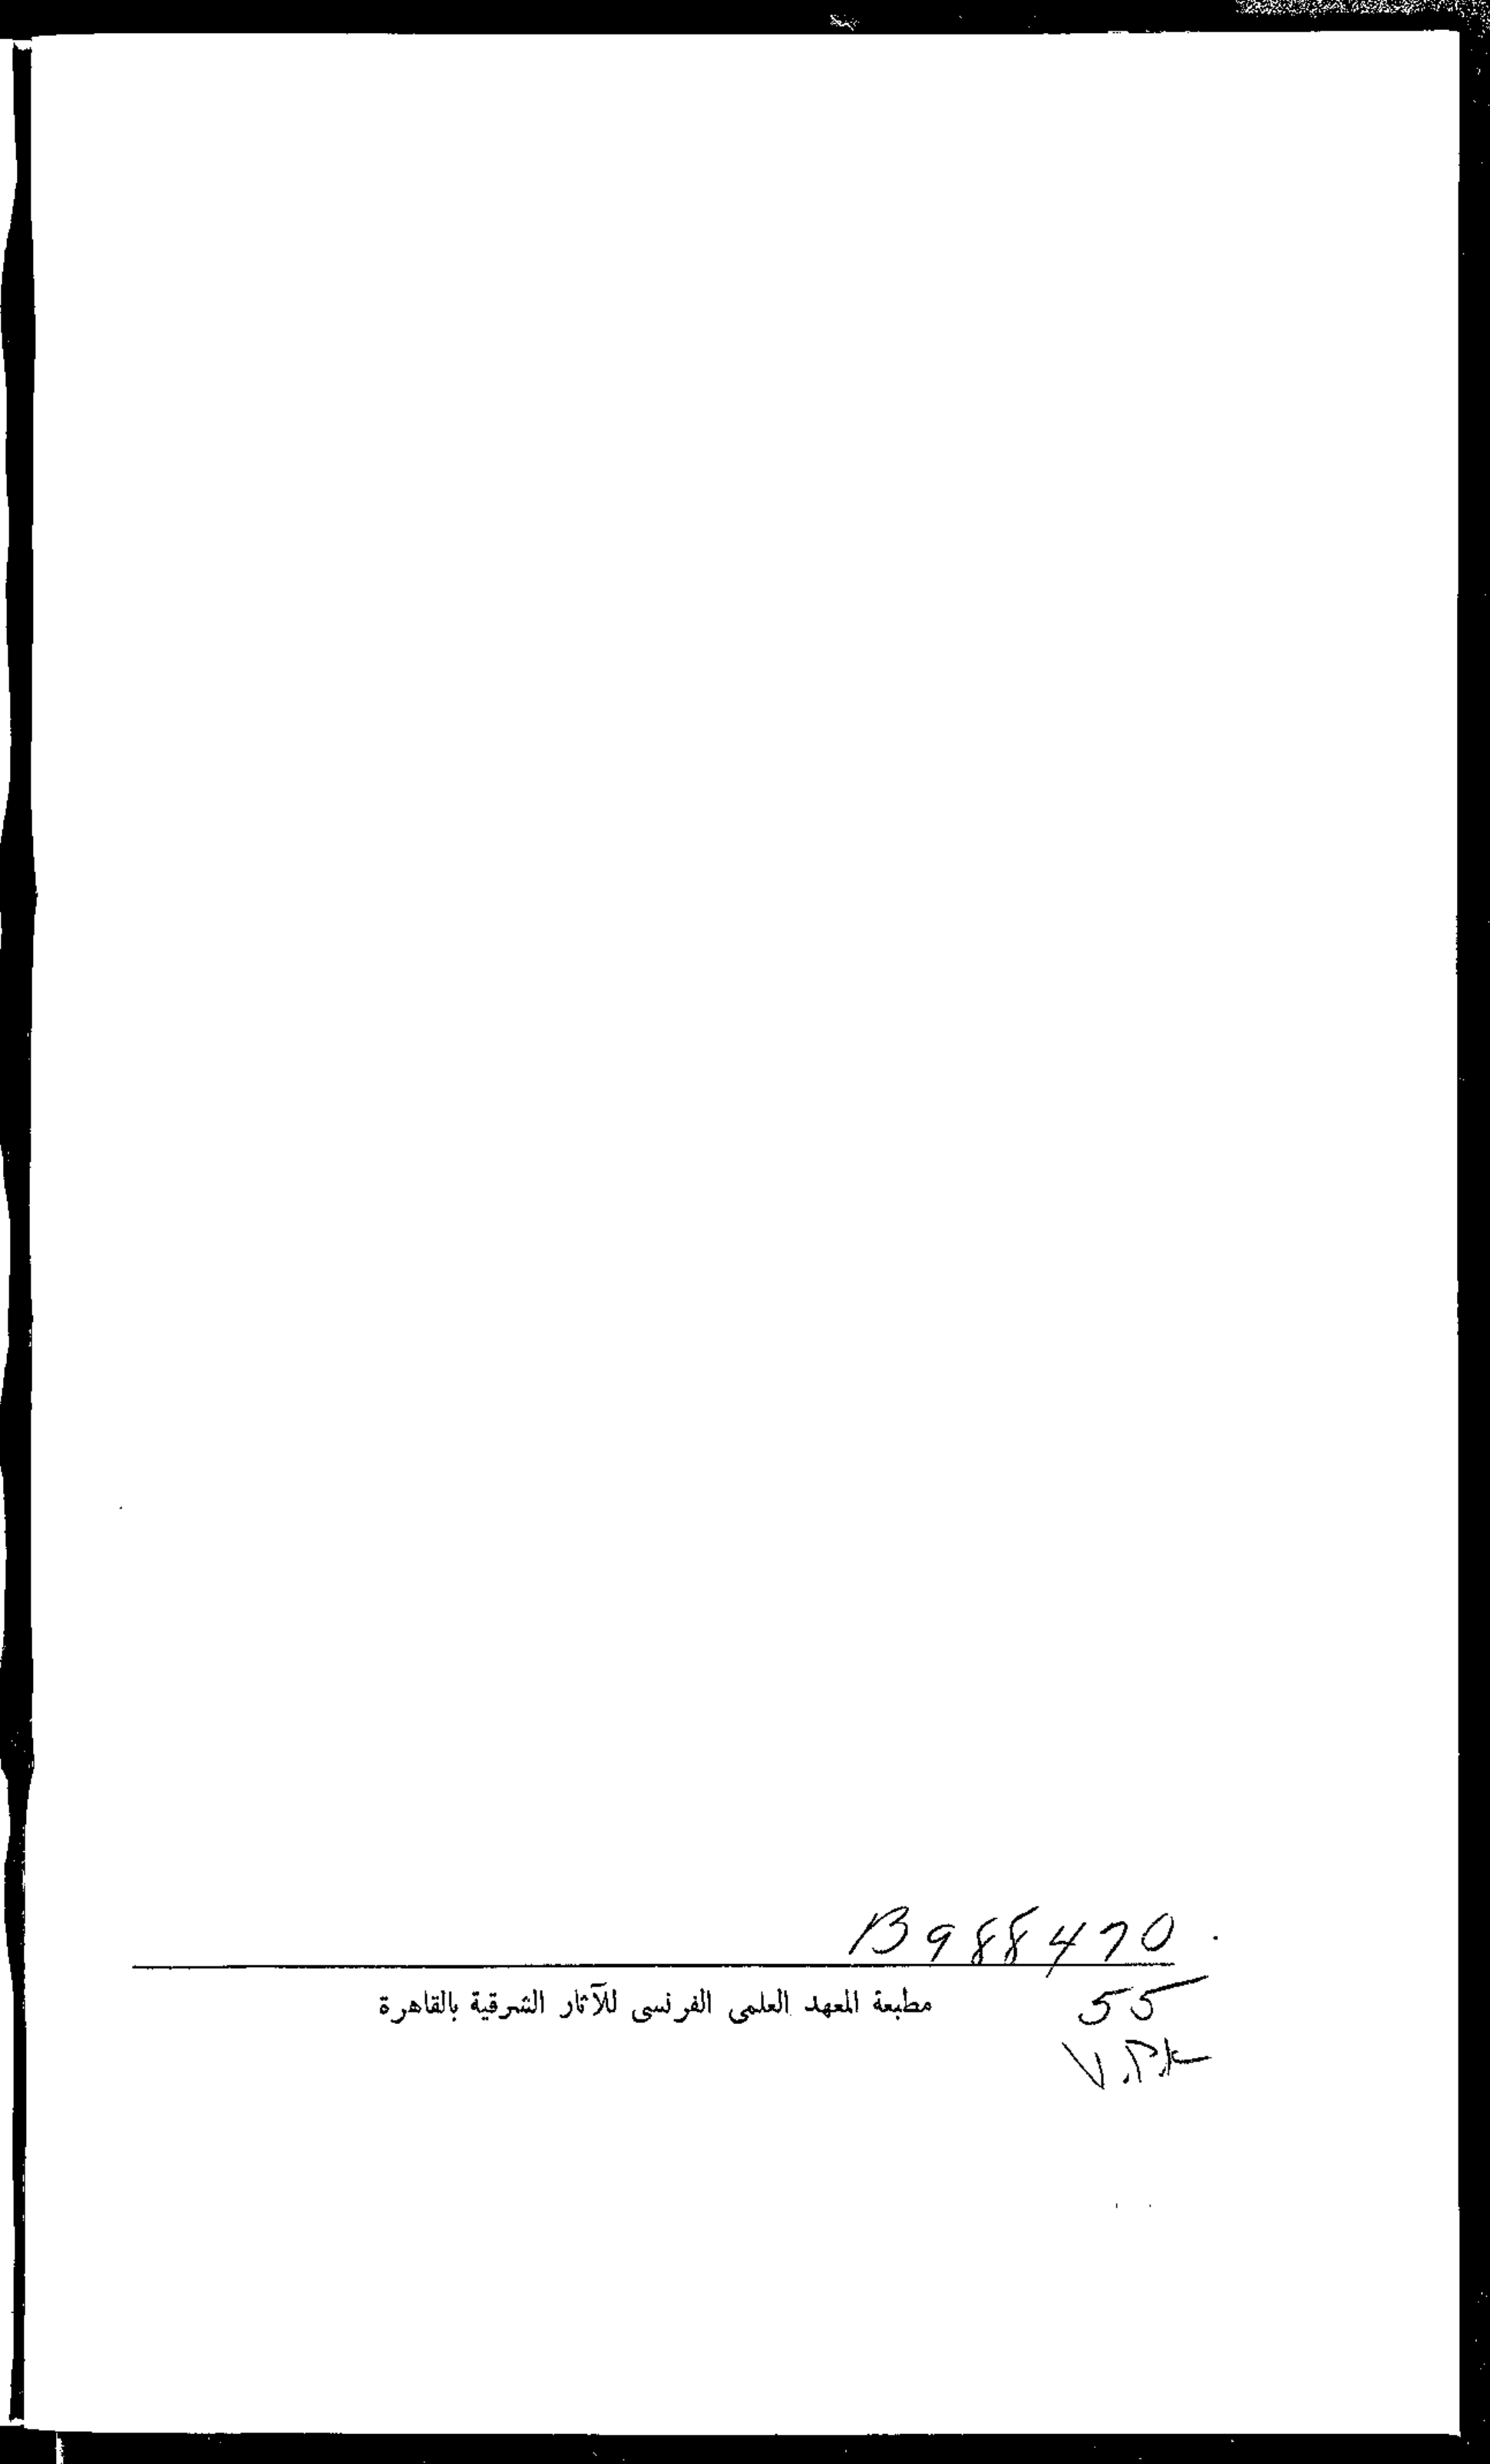 B988470.
مطبعة المعهد العلمى الفرنسى للآثار الشرقية بالقاهرة
55